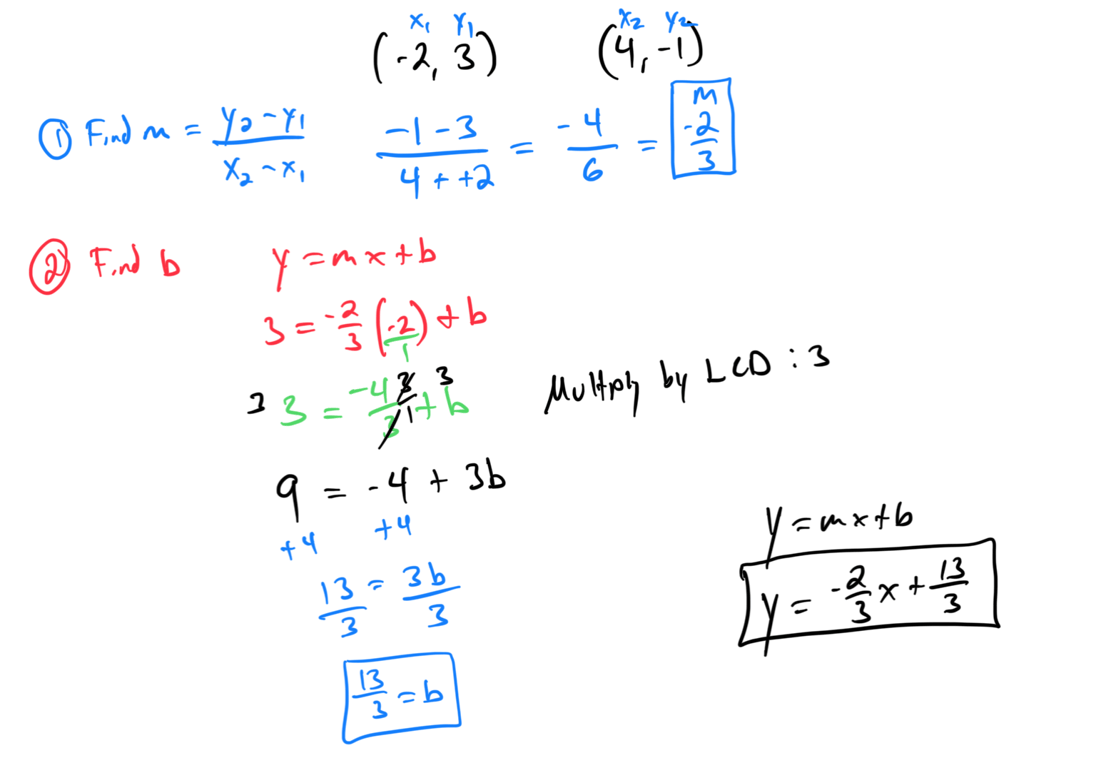 x₁ y₁ x₂ y₂
(-2, 3) (4, -1)
① Find m = y₂-y₁/x₂-x₁ -1-3/4++2 = -4/6 = m -2/3
② Find b y = mx+b
3 = -2/3 (-2/1) + b
3 3 = -4/3 3/1 + b 3 Multiply by LCD : 3
9 = -4 + 3b
+4 +4
13/3 = 3b/3
13/3 = b
y = mx+b
y = -2/3 x + 13/3